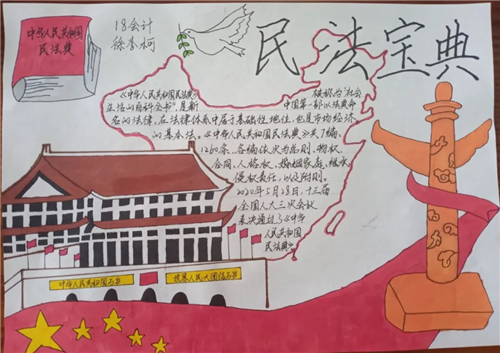 中华人民共和国
民法典
18会计
徐李柯
民法宝典
《中华人民共和国民法典》被称为"社会
生活的百科全书",是新中国第一部以法典命
名的法律,在法律体系中居于基础性地位,也是市场经济
的基本法。《中华人民共和国民法典》共7编、
1260条,各编依次为总则、物权、
合同、人格权、婚姻家庭、继承、
侵权责任,以及附则。
2020年5月28日,十三届
全国人大三次会议
表决通过了《中华
人民共和国
民法典》
中华人民共和国万岁
世界人民大团结万岁